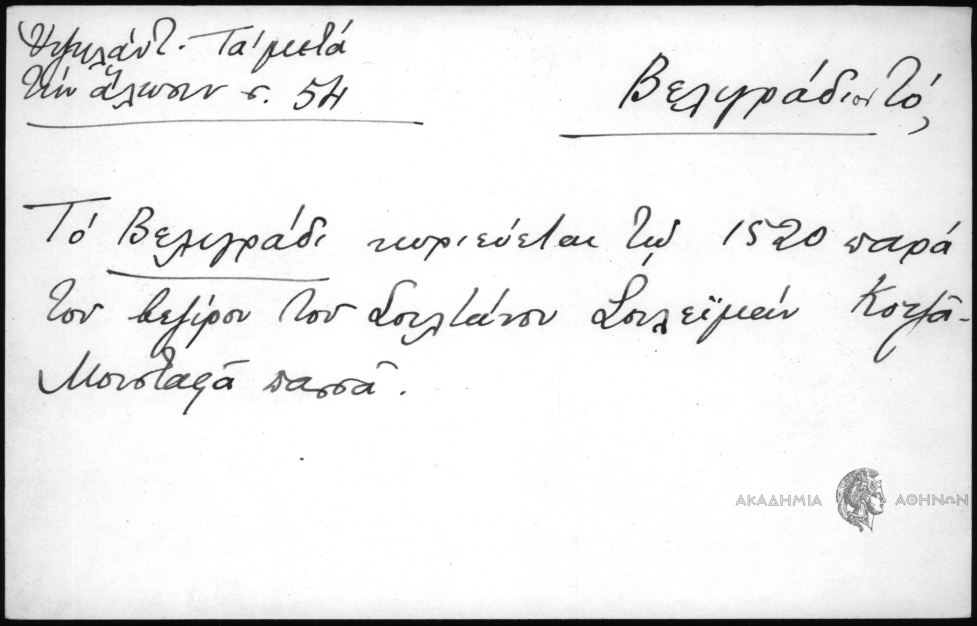 Ὑψηλάντ. Τά μετά
τήν ἅλωσιν σ. 54
Βελιγράδιον τό,
Τό Βελιγράδι κυριεύεται τῷ 1520 παρά
τοῦ βεζίρου τοῦ Σουλτάνου Σουλεϊμάν Κοτζᾶ-
Μουσταφᾶ πασσᾶ.
ΑΚΑΔΗΜΙΑ ΑΘΗΝΩΝ